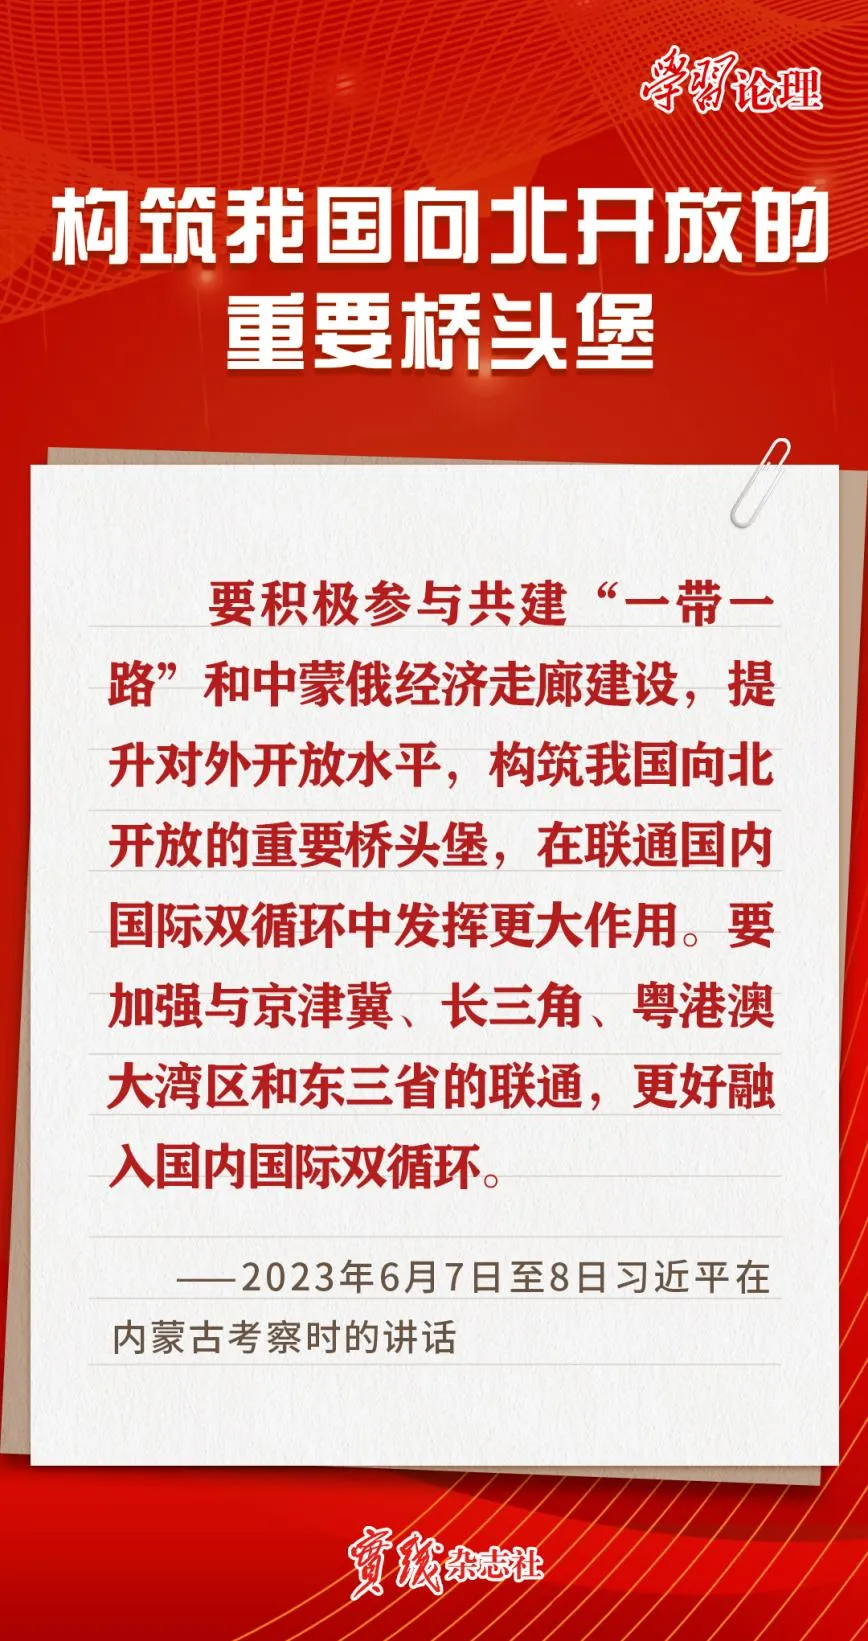 学習论理
构筑我国向北开放的
重要桥头堡
要积极参与共建“一带一
路”和中蒙俄经济走廊建设，提
升对外开放水平，构筑我国向北
开放的重要桥头堡，在联通国内
国际双循环中发挥更大作用。要
加强与京津冀、长三角、粤港澳
大湾区和东三省的联通，更好融
入国内国际双循环。
——2023年6月7日至8日习近平在
内蒙古考察时的讲话
實践杂志社